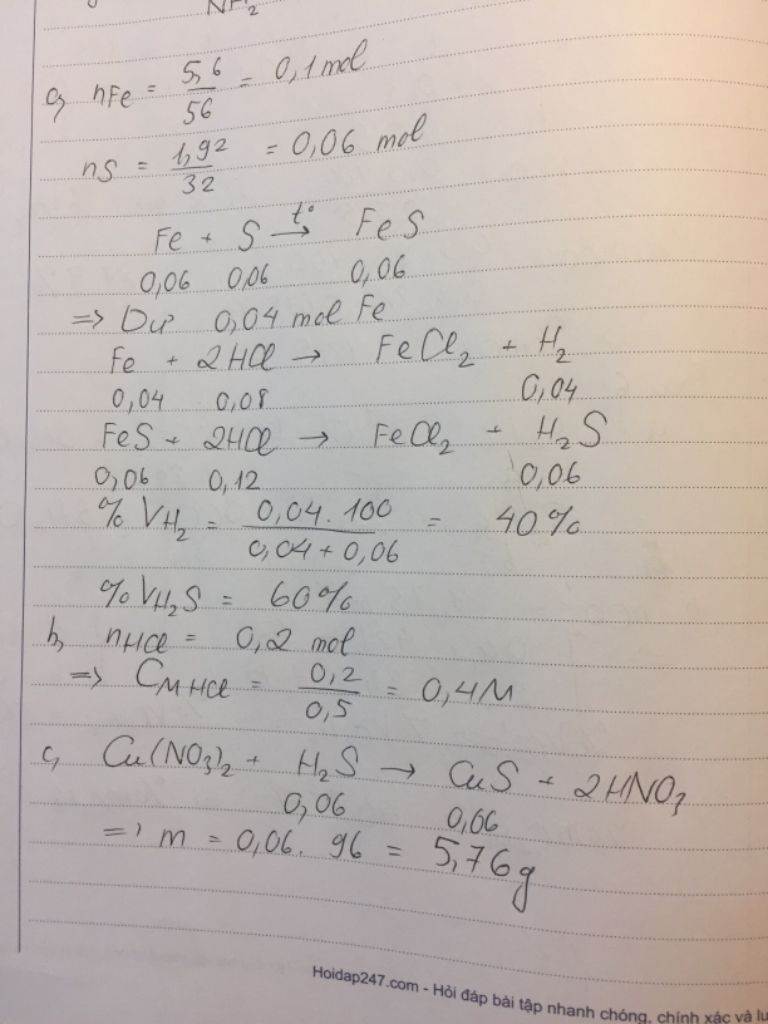 NH₂
a, nFe = 5,6/56 = 0,1 mol
nS = 1,92/32 = 0,06 mol
Fe + S →(t°) FeS
0,06 0,06 0,06
=> Dư 0,04 mol Fe
Fe + 2HCl → FeCl₂ + H₂
0,04 0,08 0,04
FeS + 2HCl → FeCl₂ + H₂S
0,06 0,12 0,06
% VH₂ = 0,04.100/0,04+0,06 = 40%
% VH₂S = 60%
b, nHCl = 0,2 mol
=> CM HCl = 0,2/0,5 = 0,4M
c, Cu(NO₃)₂ + H₂S → CuS + 2HNO₃
0,06 0,06
=> m = 0,06. 96 = 5,76g
Hoidap247.com - Hỏi đáp bài tập nhanh chóng, chính xác và